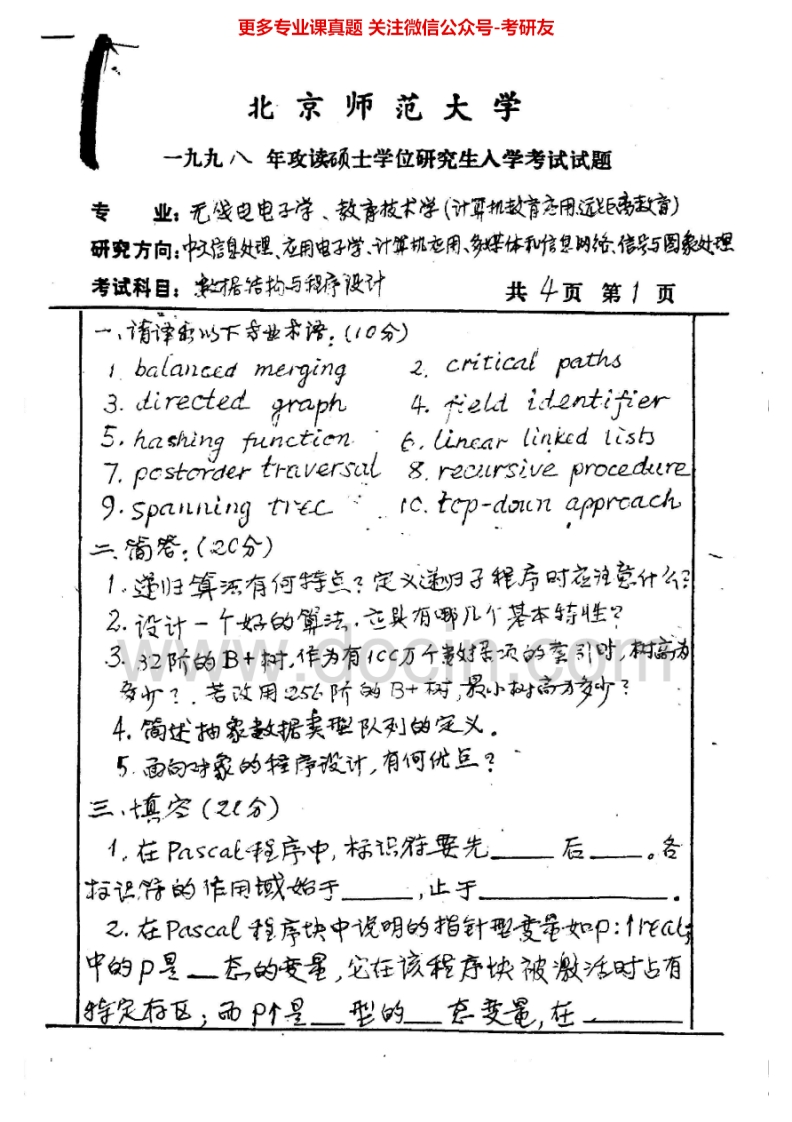 更多专业课真题 关注微信公众号-考研友
北京师范大学
一九九八 年攻读硕士学位研究生入学考试试题
专 业: 无线电电子学、教育技术学(计算机教育应用,远距离教育)
研究方向: 中文信息处理、应用电子学、计算机应用、多媒体和信息网络、信号与图象处理
考试科目: 数据结构与程序设计 共 4 页 第 1 页
一、请译出以下专业术语: (10分)
1. balanced merging 2. critical paths
3. directed graph 4. field identifier
5. hashing function 6. linear linked lists
7. postorder traversal 8. recursive procedure
9. spanning tree 10. top-down approach
二、简答: (20分)
1. 递归算法有何特点? 定义递归子程序时应注意什么?
2. 设计一个好的算法, 应具有哪几个基本特性?
www.docin.com
3. 32阶的B+树, 作为有100万个数据项的索引时, 树高为
多少? 若改用256阶的B+树, 最小树高为多少?
4. 简述抽象数据类型队列的定义。
5. 面向对象的程序设计, 有何优点?
三、填空 (20分)
1. 在Pascal程序中, 标识符要先____后____。各
标识符的作用域始于______, 止于______________.
2. 在Pascal程序块中说明的指针型变量如p:↑real;
中的p是__态的变量, 它在该程序块被激活时占有
特定存区; 而p↑是__型的__态变量, 在________